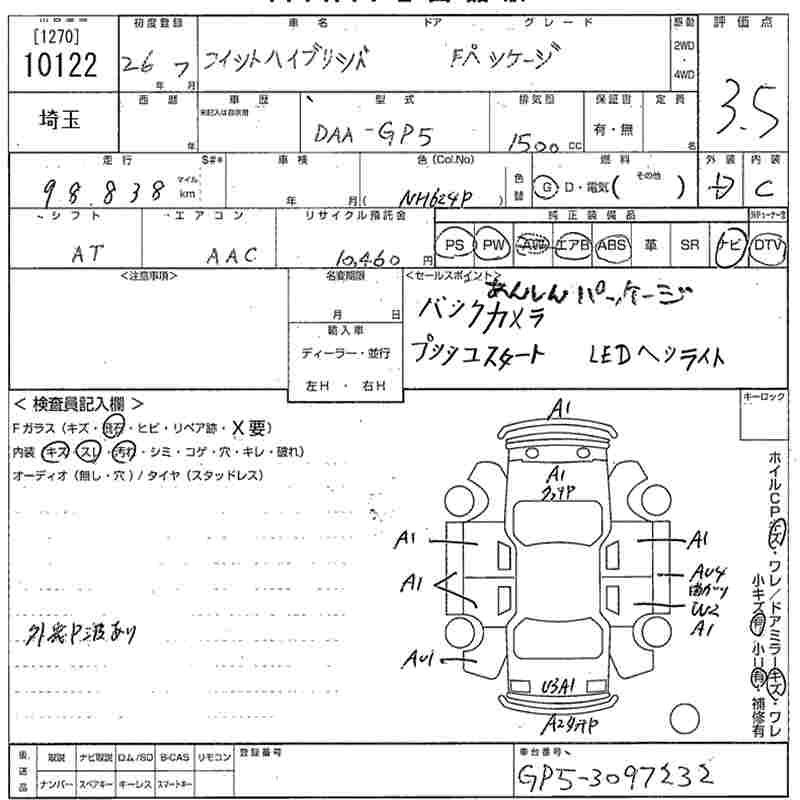 [1270]
10122
初度登録
26 7
年 月
車名
ドア
グレード
フィットハイブリッド Fパッケージ
駆動
2WD
4WD
評価点
3.5
埼玉
西暦
年
車歴
未記入は自家用
型式
DAA-GP5
排気量
1500 CC
保証書
有・無
定員
名
走行
98.838
マイル
km
S#*
車検
年 月
色(Col.No)
( NH624P )
色替
燃料
G・D・電気( その他 )
外装
内装
C
シフト
AT
エアコン
AAC
リサイクル預託金
10,460 円
純正装備品
PS PW AW エアB ABS 革 SR ナビ DTV
<注意事項>
名変期限
月 日
輸入車
ディーラー・並行
左H・右H
<セールスポイント>
あんしんパッケージ
バックカメラ
プッシュスタート LEDヘッライト
< 検査員記入欄 >
Fガラス(キズ・飛石・ヒビ・リペア跡・X要)
内装(キズ・スレ・汚れ・シミ・コゲ・穴・キレ・破れ)
オーディオ(無し・穴)/タイヤ(スタッドレス)
キーロック
A1
A1
A1
A1
A1
AU4
U2
A1
AU1
U3A1
外装P波あり
ホイルCPキズ・ワレ/ドアミラーキズ・ワレ
小キズ有・小U有・補修有
後送品
取説 ナビ取説 ロム/SD B-CAS リモコン
ナンバー スペアキー キーレス スマートキー
登録番号
車台番号
GP5-3097232